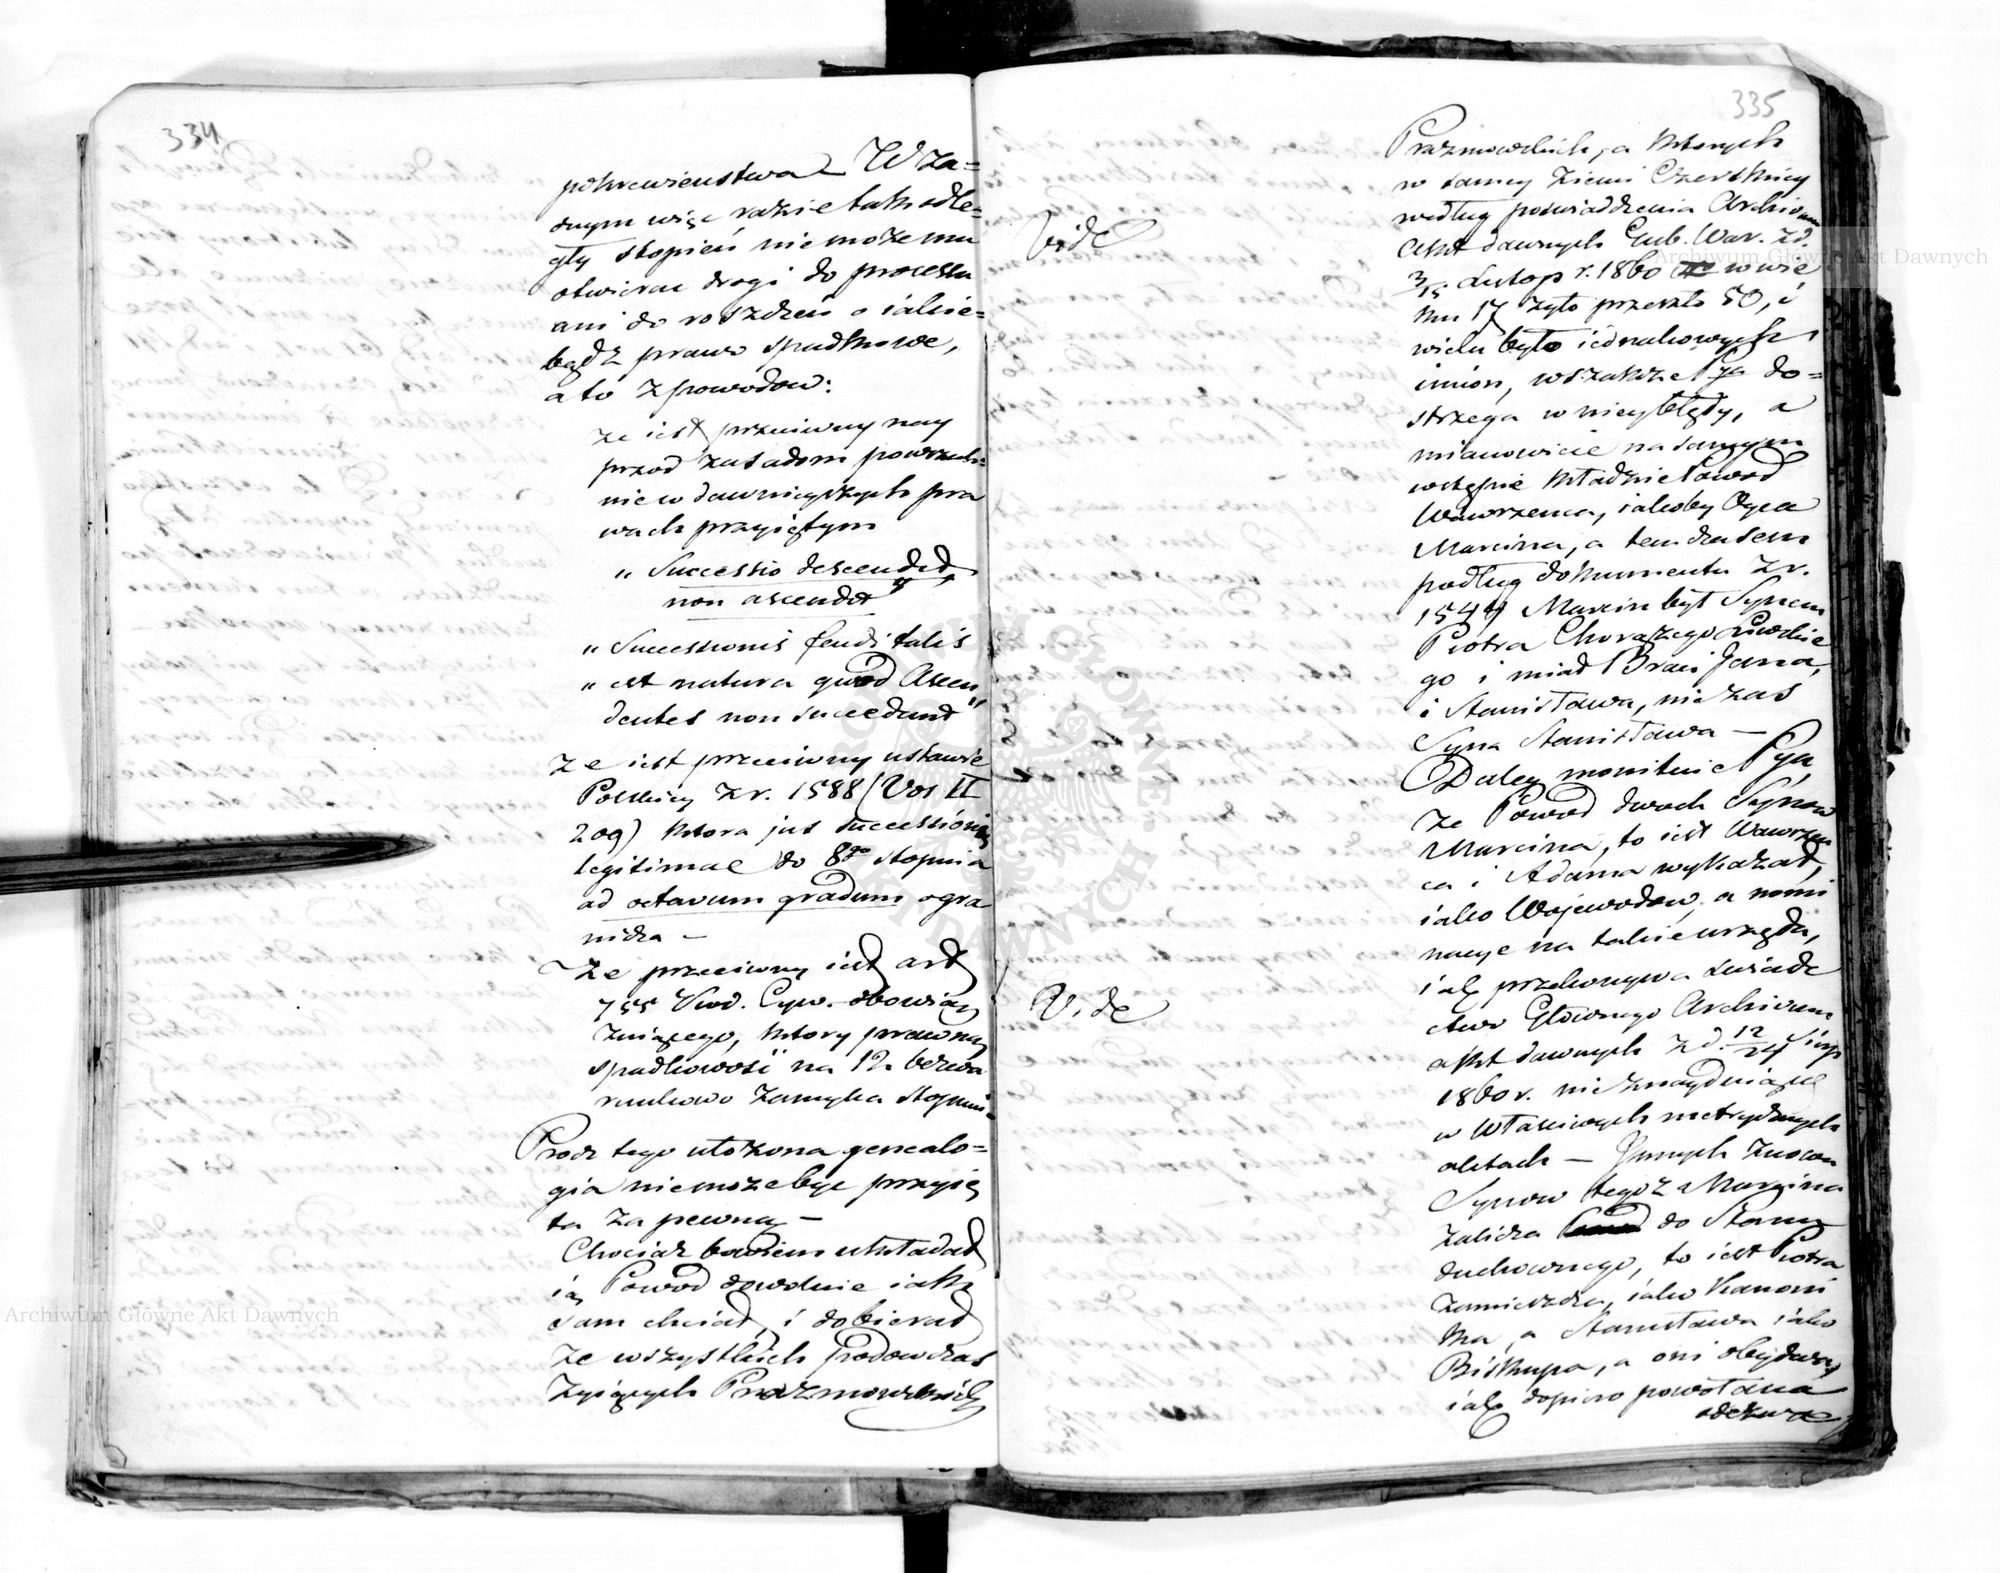 334
pokrewieństwa – W ża=
dnym więc razie tak odle=
gły stopień nie może mu
otwierać drogi do processu
ani do roszczeń o jakie=
bądź prawo spadkowe,
a to z powodów:
że iest przeciwny nay
przod zasadom powszech=
nie w dawnieyszych pra
wach przyiętym
„ Successio descendit,
non ascendit"
„ Successionis feudi talis
„ est natura quod Ascen
dentes non succedunt"
że iest przeciwny ustawie
Polskiey z r. 1588 (Vol II
209) ktora jus successionis
legitimae do 8go stopnia
ad octavum gradum ogra
nicza –
że przeciwny iest art
755 Kod. Cyw. obowią
zuiącego, ktory prawną
spadkowość na 12 bezwa
runkowo zamyka stopniu
Procz tego ułożona genealo=
gia nie może być przyię
ta za pewną –
Chociaż bowiem układał
ią Powod dowolnie iak
sam chciał, i dobierał
ze wszystkich podowczas
żyiących Prażmowskich
335
Prażmowskich, a ktorych
w samey Ziemi Czerskiey
według poświadczenia Archiwum
Akt dawnych Gub. War. z d.
3/15 Listop r. 1860 w wie
ku 17 żyło przeszło 50, i
wielu było iednakowych
imion, wszakże Pya do=
strzega w niey błędy, a
mianowicie na samym
wstępie kładzie Powod
Wawrzenca, iakoby Oyca
Marcina, a tem czasem
podług dokumentu z r.
1544 Marcin był Synem
Piotra Chorążego Liwskie
go i miał Braci Jana,
i Stanisława, nie zaś
Syna Stanisława –
Vide
Daley monituie Pya,
że Powod dwoch Synow
Marcina, to iest Wawrzen
ca i Adama wykazał,
iako Wojewodow, a nomi
nacye na takie urzęda,
iak przekonywa świade
ctwo Głównego Archiwum
akt dawnych z d. 12/24 Sierp
1860 r. nie znayduią się
w właściwych metrycznych
aktach – Innych znowu
Synow tegoż Marcina
zalicza do Stanu
duchownego, to iest Piotra
zamieszcza, iako Kanoni
ka, a Stanisława iako
Biskupa, a oni obydway
iak dopiero powołana
odezwa
Vide
Archiwum Główne Akt Dawnych
Archiwum Główne Akt Dawnych